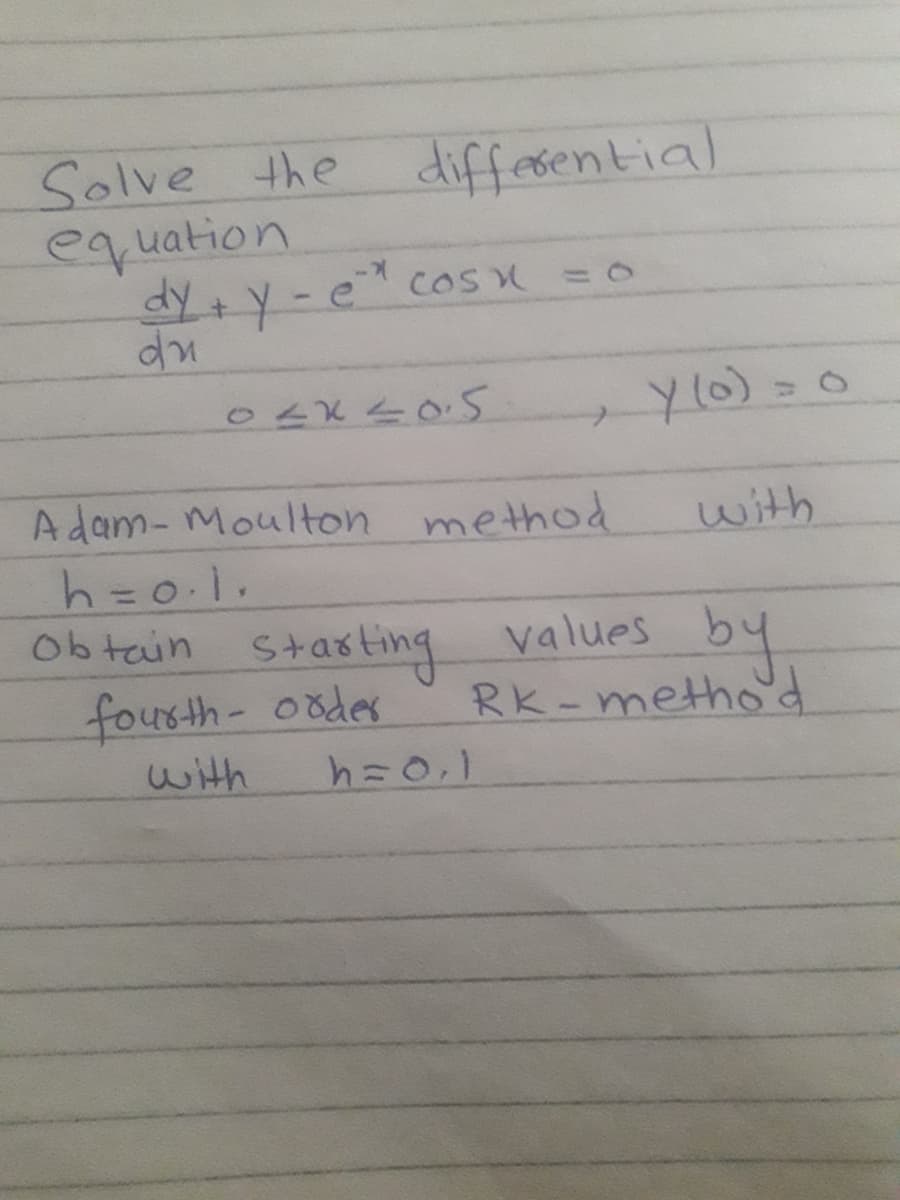 Solve the differential
equation
dy/dx + y - e^-x cos x = 0
0 ≤ x ≤ 0.5 , y(0) = 0
Adam-Moulton method with
h = 0.1.
Obtain starting values by
fourth-order RK-method
with h = 0.1